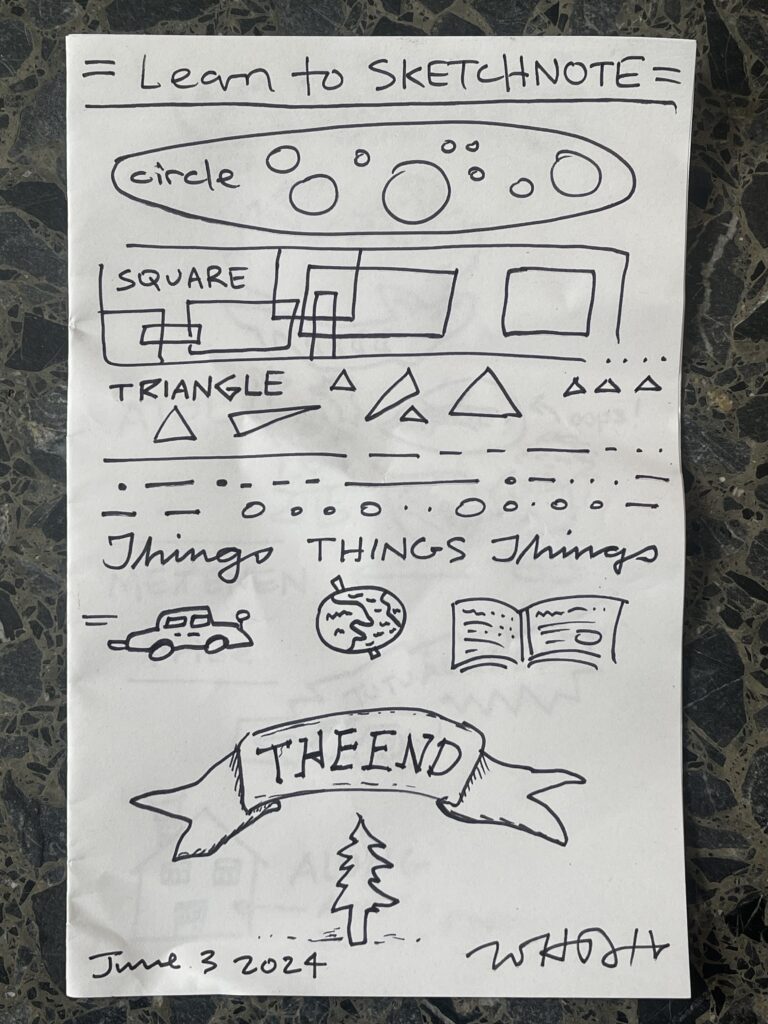 = Learn to SKETCHNOTE =
circle
SQUARE
TRIANGLE
Things THINGS Things
THE END
June 3 2024